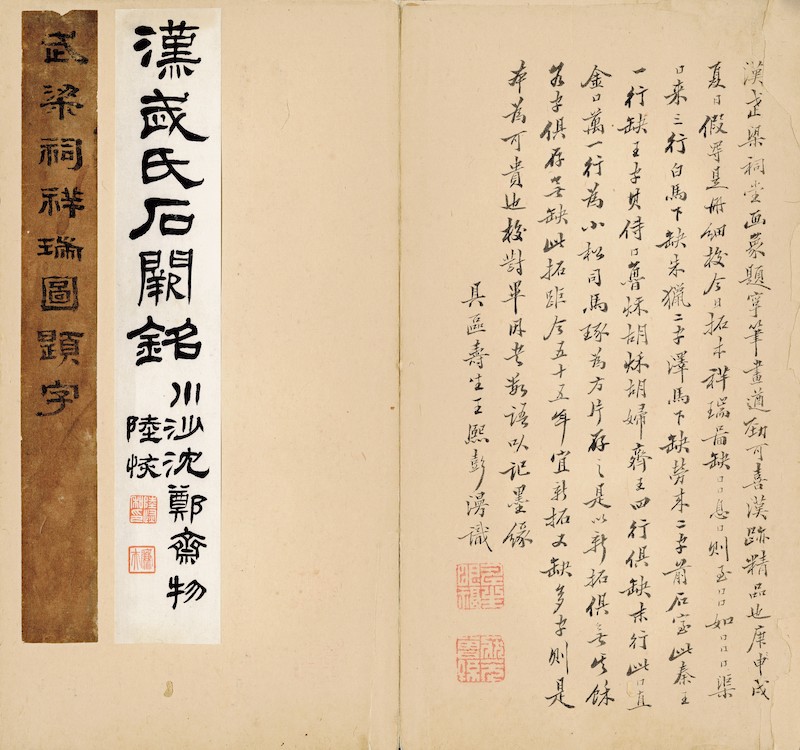 漢武梁祠堂画象題字筆畫遒勁可喜漢跡精品也庚申戌
夏日假是册細校今日拓本祥瑞圖缺口口息口則至口口如口口口渠
口来三行白馬下缺朱獵二字澤馬下缺勞来二字前石室此秦王
一行缺王字其侍口魯秌胡秌胡婦齊王四行俱缺末行此口直
金口萬一行為小松司馬琢為方片存之是以新拓俱無其餘
若字俱存無缺此拓距今五十五年宜新拓又缺多字則是
本為可貴也校對畢因書數語以記墨緣
具區壽生王熙彭漫識
漢武氏石闕銘
川沙沈鄭齋物
陸恢
武梁祠祥瑞圖題字